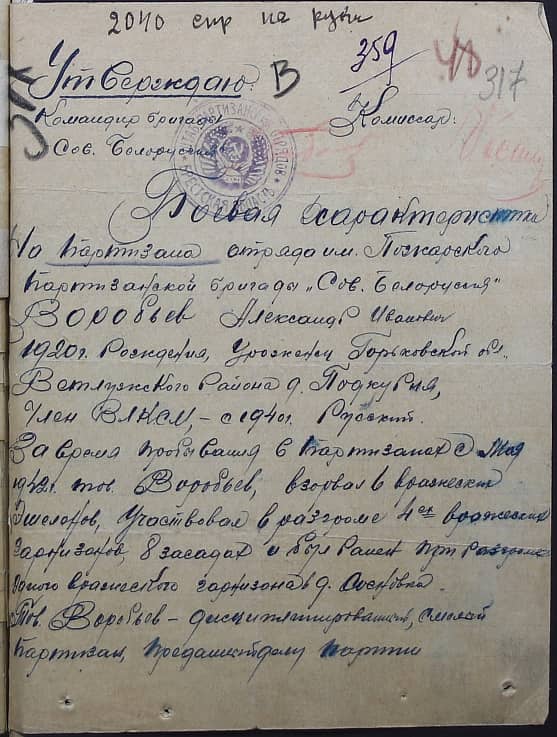 2040 стр на руки
359
317
Утверждаю: В
Командир бригады Комиссар:
Сов. Белоруссия
ПАРТИЗАНСКИХ ОТРЯДОВ БРЕСТСКАЯ ОБЛАСТЬ
Боевая характеристика
На партизана отряда им. Пожарского
партизанской бригады „Сов. Белоруссия"
Воробьев Александр Иванович
1920г. рождения, Уроженец Горьковской обл.
Ветлужского района д.
Член ВЛКСМ, – с 1940г. Русский.
За время пребывания в партизанах с мая
1942г. тов. Воробьев, взорвал 6 вражеских
Эшелонов, участвовал в разгроме 4ех вражеских
гарнизонов, 8 засадах и был ранен при разгроме
одного вражеского гарнизона в д. Сосновка.
Тов. Воробьев – дисциплинированный, смелый
партизан, преданный делу партии